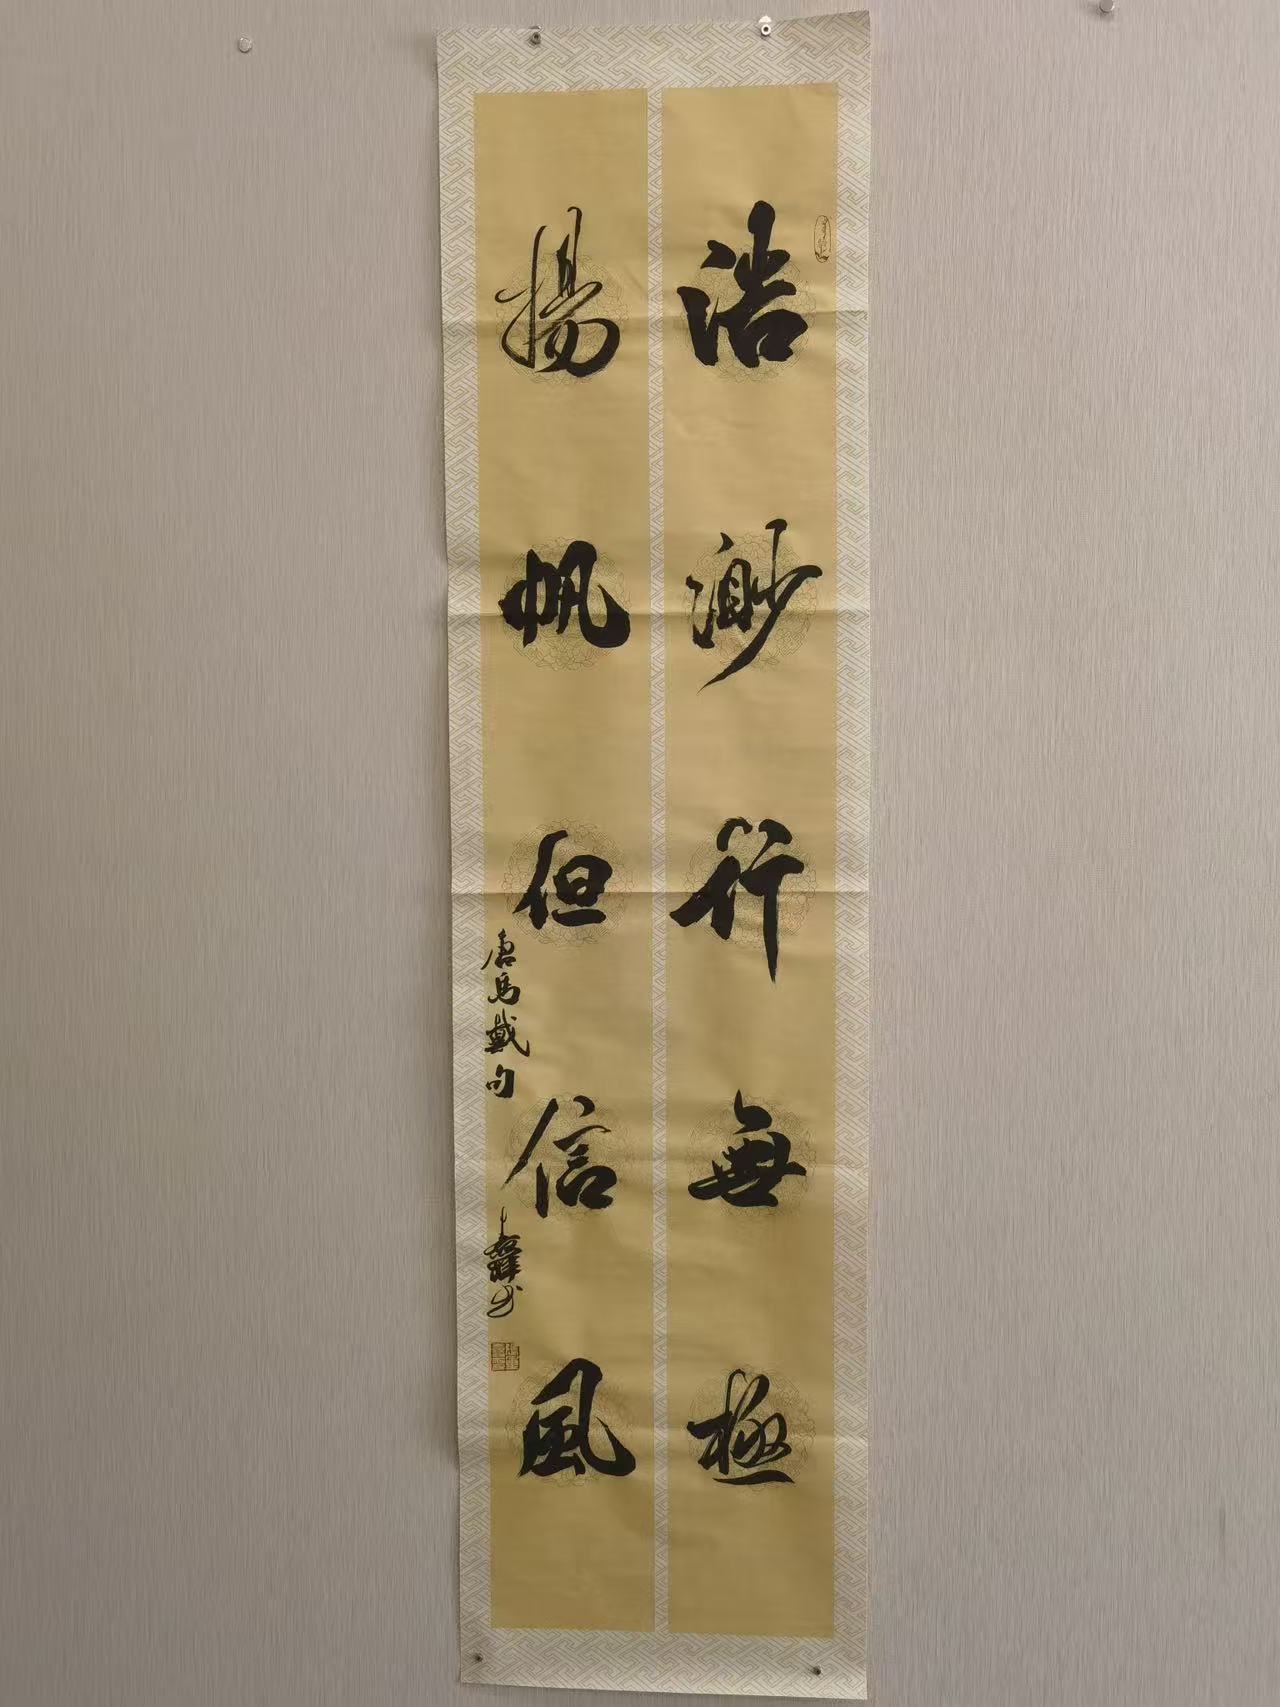 浩渺行無極
揚帆但信風
唐馬戴句